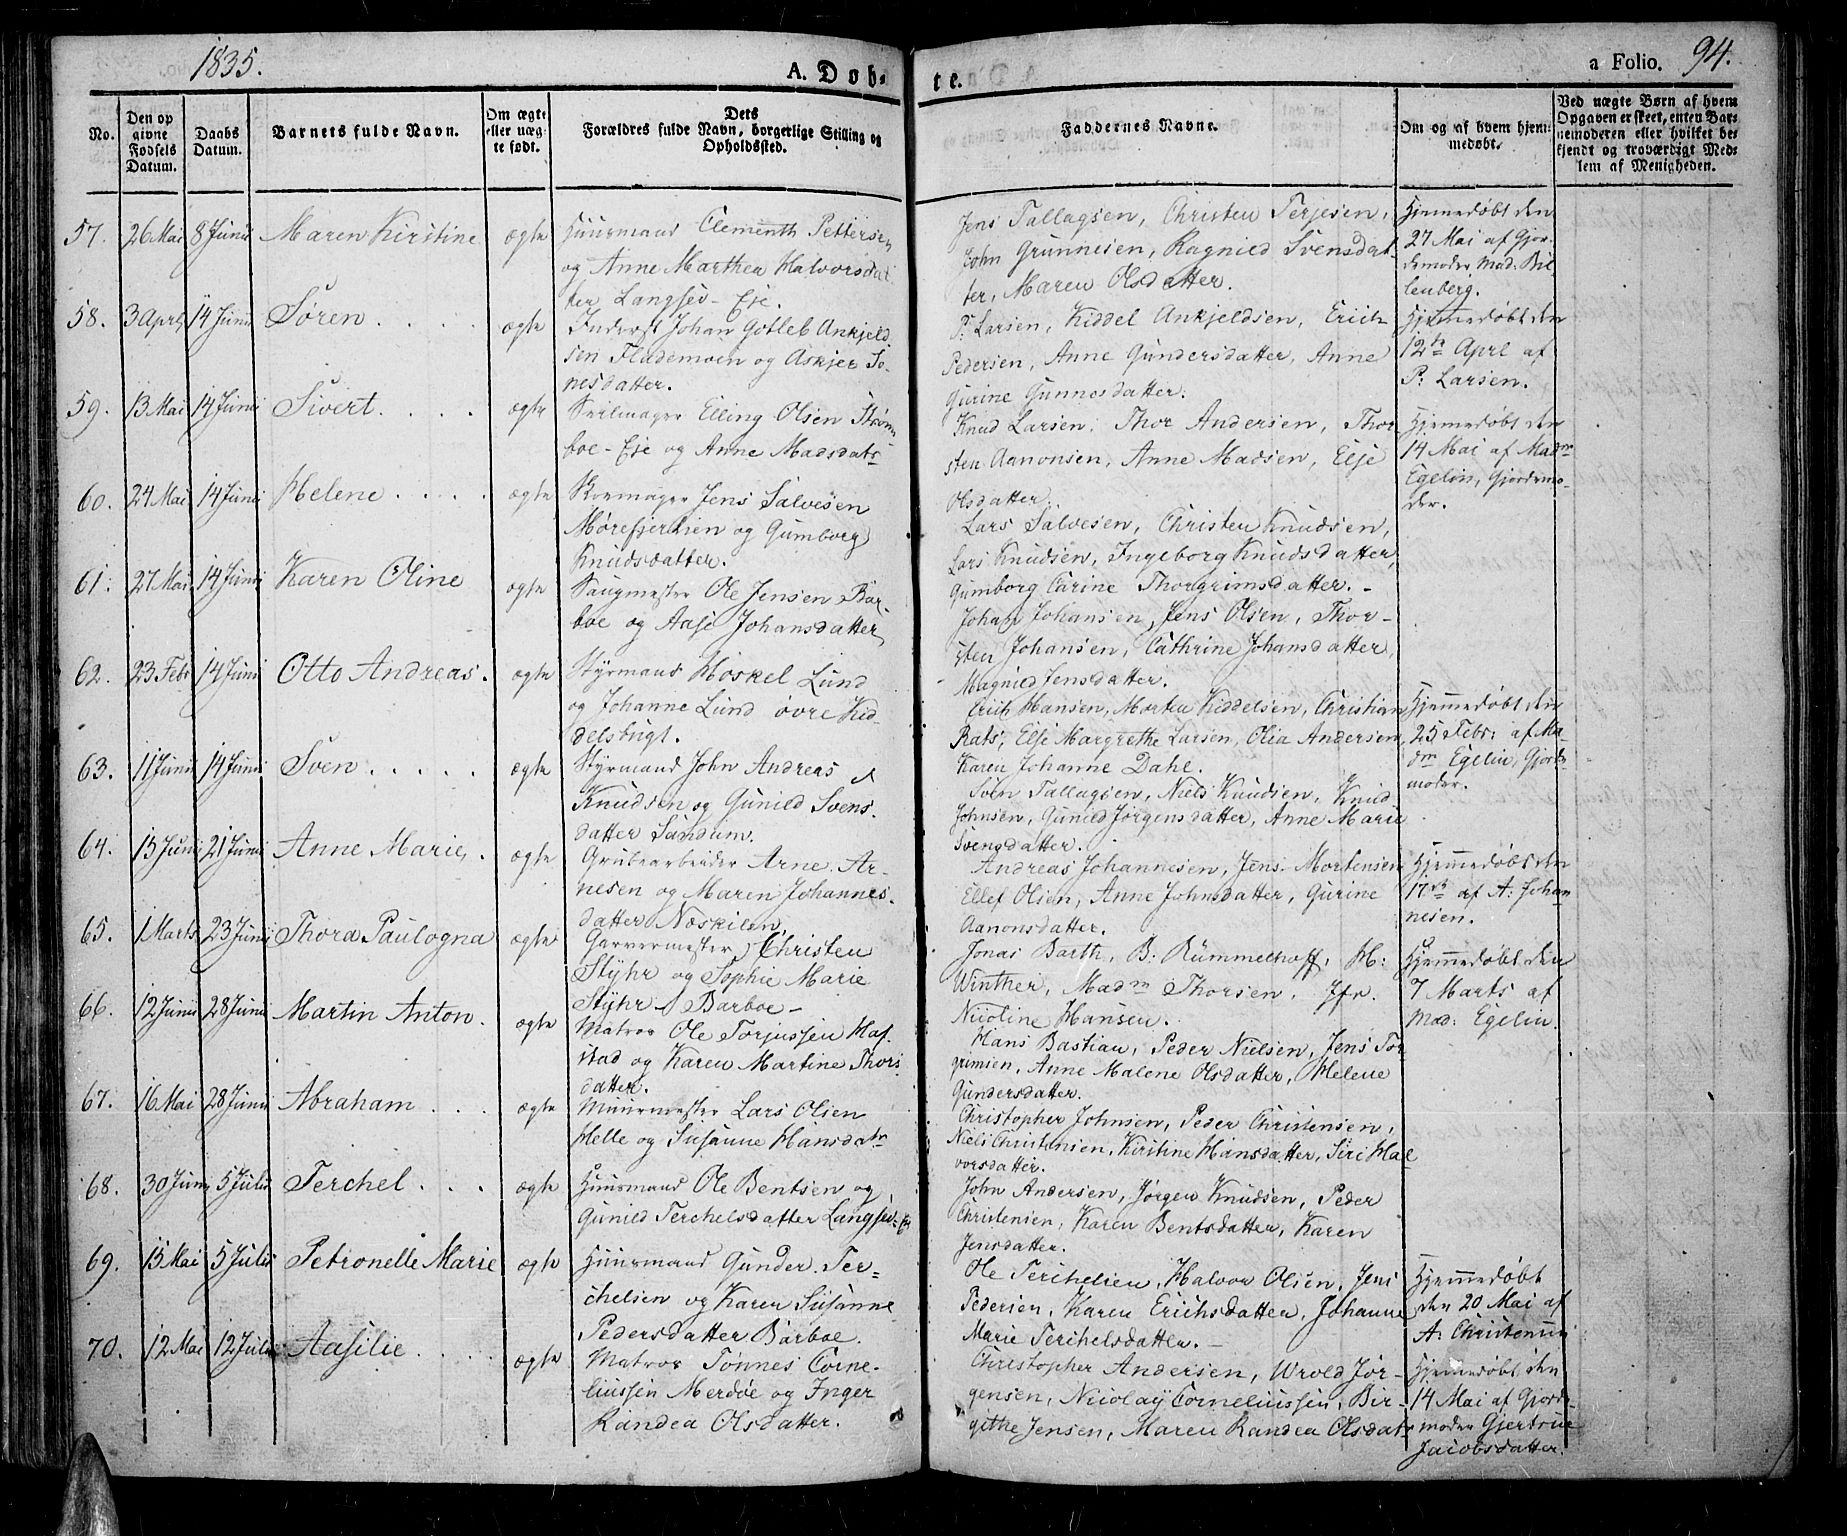 1835.
A. Døb-
te.
a Folio. 94.
No.
Den op
givne
Fødsels
Datum.
Daabs
Datum.
Barnets fulde Navn.
Om ægte
eller uæg
te født.
Dets
Forældres fulde Navn, borgerlige Stilling og
Opholdssted.
Faddernes Navne.
Om og af hvem hjem-
medøbt.
Ved uægte Børn af hvem
Opgaven er skeet, enten Bar-
nemoderen eller hvilket be-
kjendt og troværdigt Med-
lem af Menigheden.
57. 26 Mai 8 Junii Maren Kirstine ægte
Huusmand Clementh Pettersen
og Anne Marthea Halvorsdat
ter Langsev-Eje.
Jens Tallagsen, Christen Terjesen,
John Grunnesen, Ragnild Svensdat-
ter, Maren Olsdatter.
Hjemmedøbt den
27 Mai af Gjor-
demoder Mad: Bil-
lenberg.
58. 3 April 14 Junii Søren ægte
Inderst Johan Gotleb Ankjeld
sen Flademoen og Askjer Jo-
nesdatter.
P: Larsen, Kiddel Ankjeldsen, Erich
Pedersen, Anne Gundersdatter, Anne
Gurine Gunnesdatter.
Hjemmedøbt den
12te April af
P: Larsen.
59. 13 Mai 14 Junii Sivert ægte
Seilmager Elling Olsen Strøm
boe-Eje og Anne Madsdatr
Knud Larsen, Thor Andersen, Thor
sten Aanonsen, Anne Madsen, Elje
Olsdatter.
Hjemmedøbt den
14 Mai af Madm
Egelin, Gjordemo-
der.
60. 24 Mai 14 Junii Helene ægte
Skomager Jens Salvesen
Mørefjerchen og Gumborg
Knudsdatter.
Lars Salvesen, Christen Knudsen,
Lars Knudsen, Ingeborg Knudsdatter,
Gumborg Carine Thorgrimsdatter.
61. 27 Mai 14 Junii Karen Oline ægte
Saugmester Ole Jensen Bar-
boe og Aase Johansdatter
Johan Johansen, Jens Olsen, Thor-
sten Johansen, Cathrine Johansdatter,
Magnild Jensdatter.
62. 23 Febr 14 Junii Otto Andreas. ægte
Styrmand Høskel Lund
og Johanne Lund øvre Kid-
delsbugt.
Erich Hansen, Morten Kiddelsen, Christian
Rats, Elje Margrethe Larsen, Olia Andersen,
Karen Johanne Dahl.
Hjemmedøbt den
25 Febr: af Ma-
dm Egelin, Gjorde
moder.
63. 11 Junii 14 Junii Sven ægte
Styrmand John Andreas
Knudsen og Gunild Svens-
datter Sandum.
Sven Tallagsen, Niels Knudsen, Knud
Johnsen, Gunild Jørgensdatter, Anne Marie
Svensdatter.
64. 15 Junii 21 Junii Anne Marie, ægte
Grubearbeider Arne Ar-
nesen og Maren Johannes-
datter Næskilen,
Andreas Johannesen, Jens Mortensen
Ellef Olsen, Anne Johnsdatter, Gurine
Aanonsdatter.
Hjemmedøbt den
17de af A: Johan
nesen.
65. 1 Marts 23 Junii Thora Paulogna ægte
Garvermester Christen
Styhr og Sophie Marie
Styhr Barboe-
Jonas Barth, B. Rümmelhoff, H:
Winther, Madm Thorsen, Jfr.
Nicoline Hansen.
Hjemmedøbt den
7 Marts af
Mad: Egelin.
66. 12 Junii 28 Junii Martin Anton. ægte
Matros Ole Torjussen Haf-
stad og Karen Martine Thors
datter.
Hans Bastian, Peder Nielsen, Jens Tor
grimsen, Anne Malene Olsdatter, Helene
Gundersdatter.
67. 16 Mai 28 Junii Abraham ægte
Muurmester Lars Olsen
Helle og Susanne Hansdatr
Christopher Johnsen, Peder Christensen,
Niels Christensen, Kirstine Hansdatter, Siri Hal
vorsdatter.
68. 30 Junii 5 Julii Terchel ægte
Huusmand Ole Bentsen og
Gunild Terchelsdatter Langsev-Ei
John Andersen, Jørgen Knudsen, Peder
Christensen, Karen Bentsdatter, Karen
Jensdatter.
69. 15 Mai 5 Julii Petronelle Marie ægte
Huusmand Gunder Ter-
chelsen og Karen Susanne
Pedersdatter Barboe.
Ole Terchelsen, Halvor Olsen, Jens
Pedersen, Karen Erichsdatter, Johanne
Marie Terchelsdatter.
Hjemmedøbt
den 20 Mai af
A: Christensen
70. 12 Mai 12 Julii Aasilie ægte
Matros Tønnes Corne-
liussen Merdøe og Inger
Randea Olsdatter.
Christopher Andersen, Wrold Jør-
gensen, Nicolay Corneliussen, Bir-
githe Jensen, Maren Randea Olsdatr
Hjemmedøbt den
14 Mai af Gjorde
moder Gjertrue
Jacobsdatter.